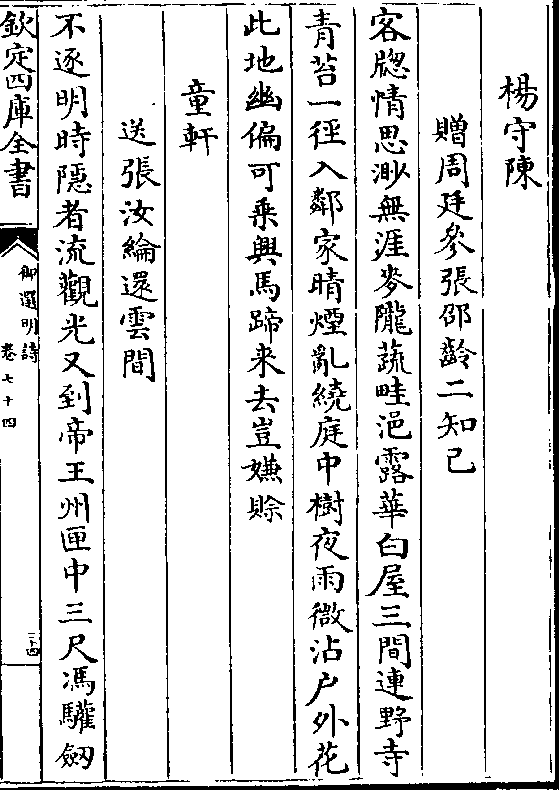 楊守陳
贈周廷參張邵齡二知己
客牎情思渺無涯麥隴蔬畦浥露華白屋三間連野寺
青苔一徑入鄰家晴煙亂繞庭中樹夜雨微沾户外花
此地幽偏可乗興馬蹄来去豈嫌賒
童軒
送張汝綸還雲間
不逐明時隱者流觀光又到帝王州匣中三尺馮驩劒
欽定四庫全書
御選明詩
卷七十四
三十四